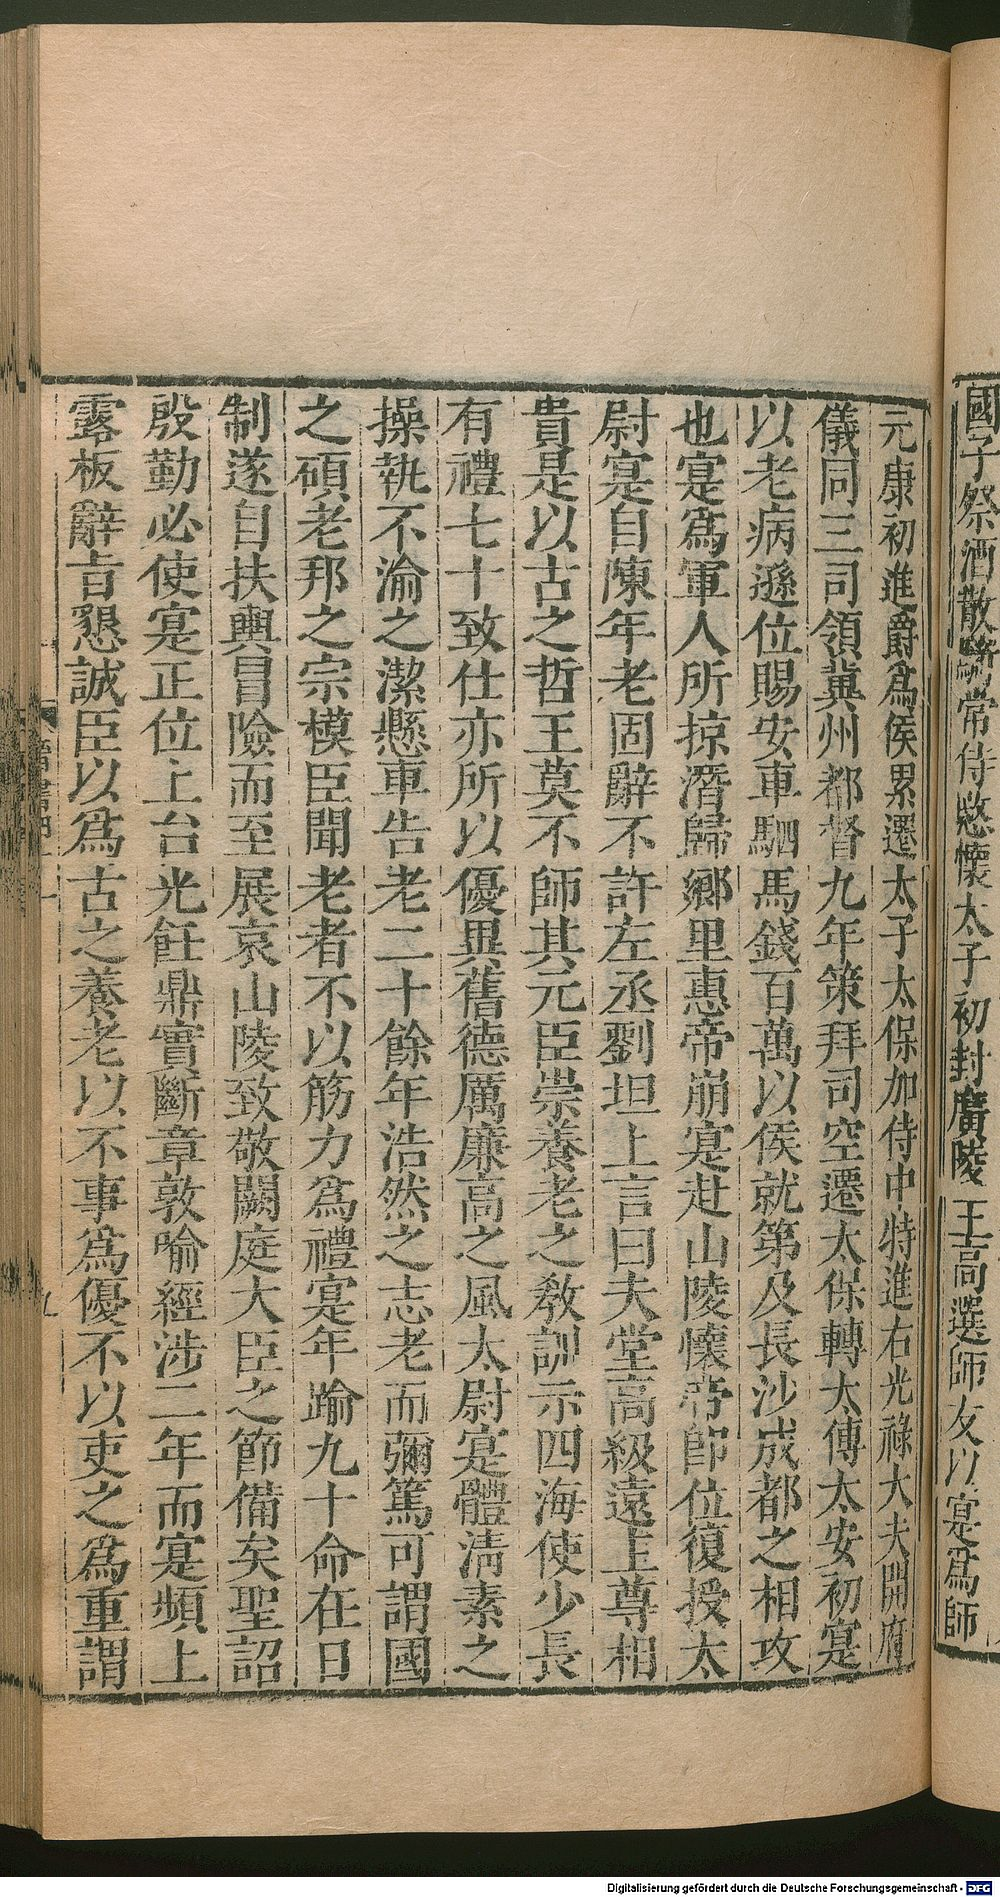 國子祭酒散騎常侍愍懷太子初封廣陵王高選師友以寔爲師
元康初進爵爲侯累遷太子太保加侍中特進右光祿大夫開府
儀同三司領冀州都督九年策拜司空遷太保轉太傅太安初寔
以老病遜位賜安車駟馬錢百萬以侯就第及長沙成都之相攻
也寔爲軍人所掠潛歸鄉里惠帝崩寔赴山陵懷帝卽位復授太
尉寔自陳年老固辭不許左丞劉坦上言曰夫堂高級遠主尊相
貴是以古之哲王莫不師其元臣崇養老之敎訓示四海使少長
有禮七十致仕亦所以優異舊德厲廉高之風太尉寔體清素之
操執不渝之潔懸車告老二十餘年浩然之志老而彌篤可謂國
之碩老邦之宗模臣聞老者不以筋力爲禮寔年踰九十命在日
制遂自扶輿冒險而至展哀山陵致敬闕庭大臣之節備矣聖詔
殷勤必使寔正位上台光飪鼎實斷章敦喻經涉二年而寔頻上
露板辭旨懇誠臣以爲古之養老以不事爲優不以吏之爲重謂
Digitalisierung gefördert durch die Deutsche Forschungsgemeinschaft - DFG